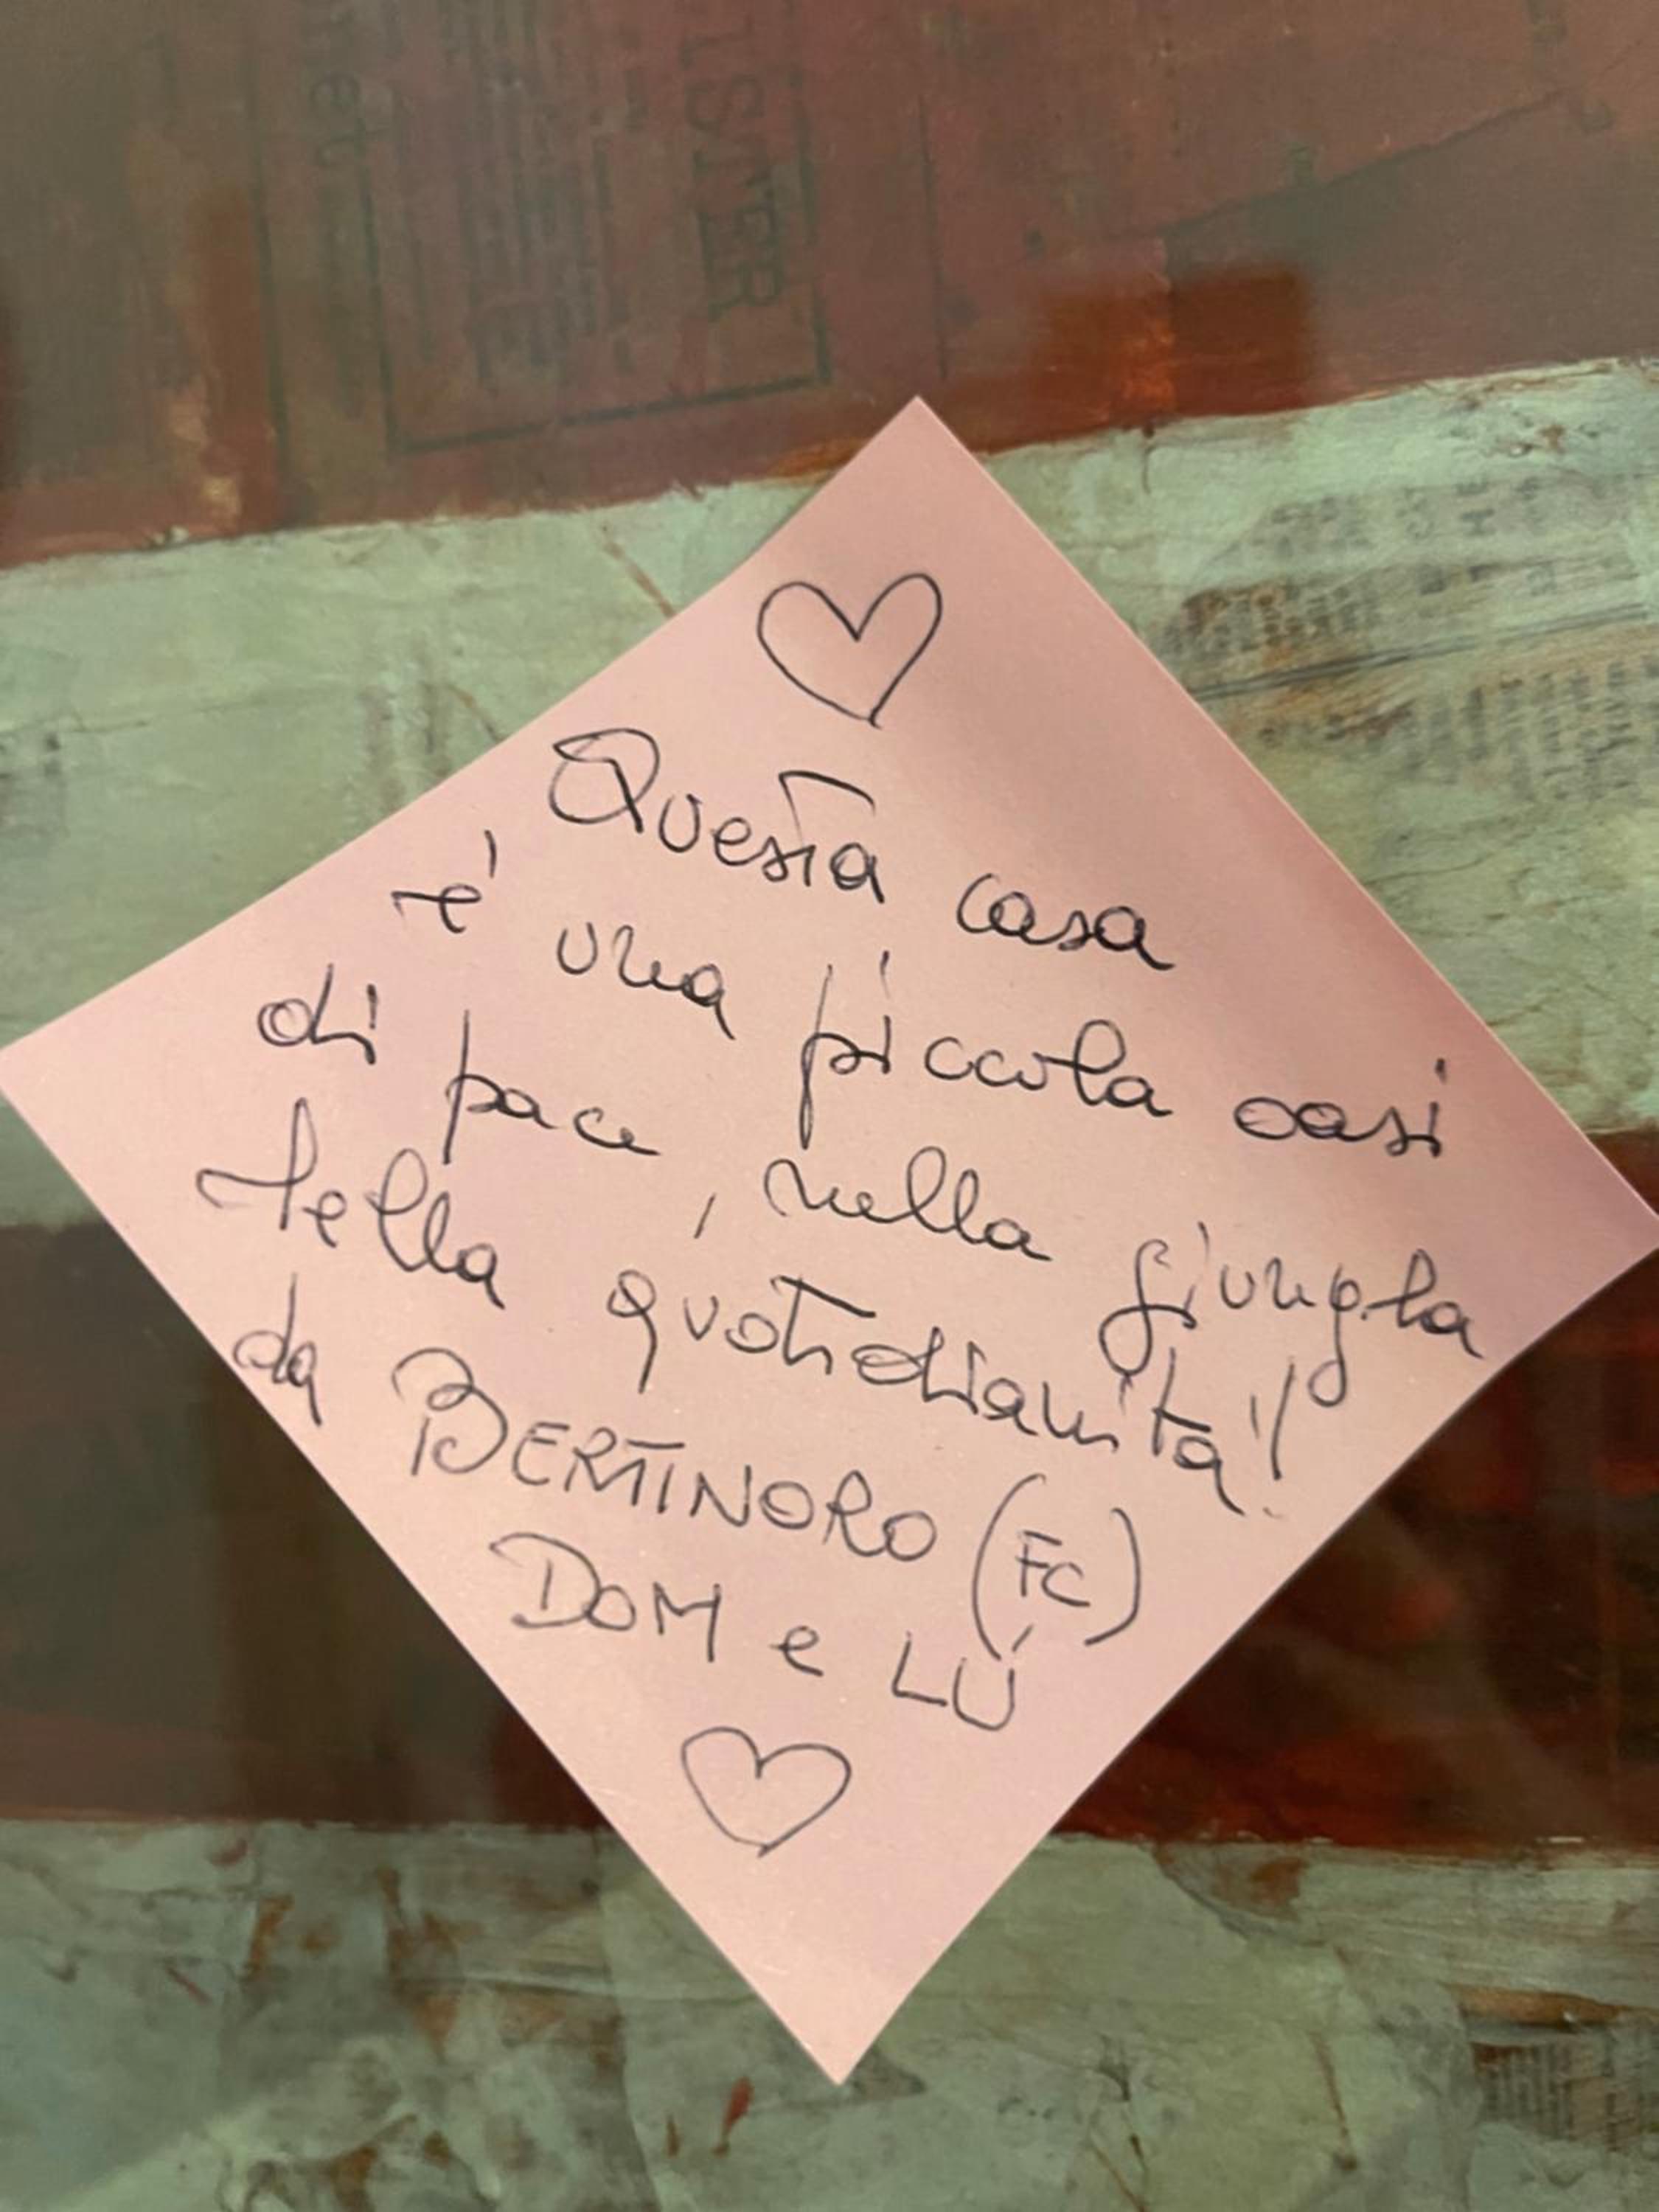 LSTER
net
Questa casa
e' una piccola oasi
di pace, nella giungla
della quotidianita'!
da BERTINORO (FC)
DOM e LÚ